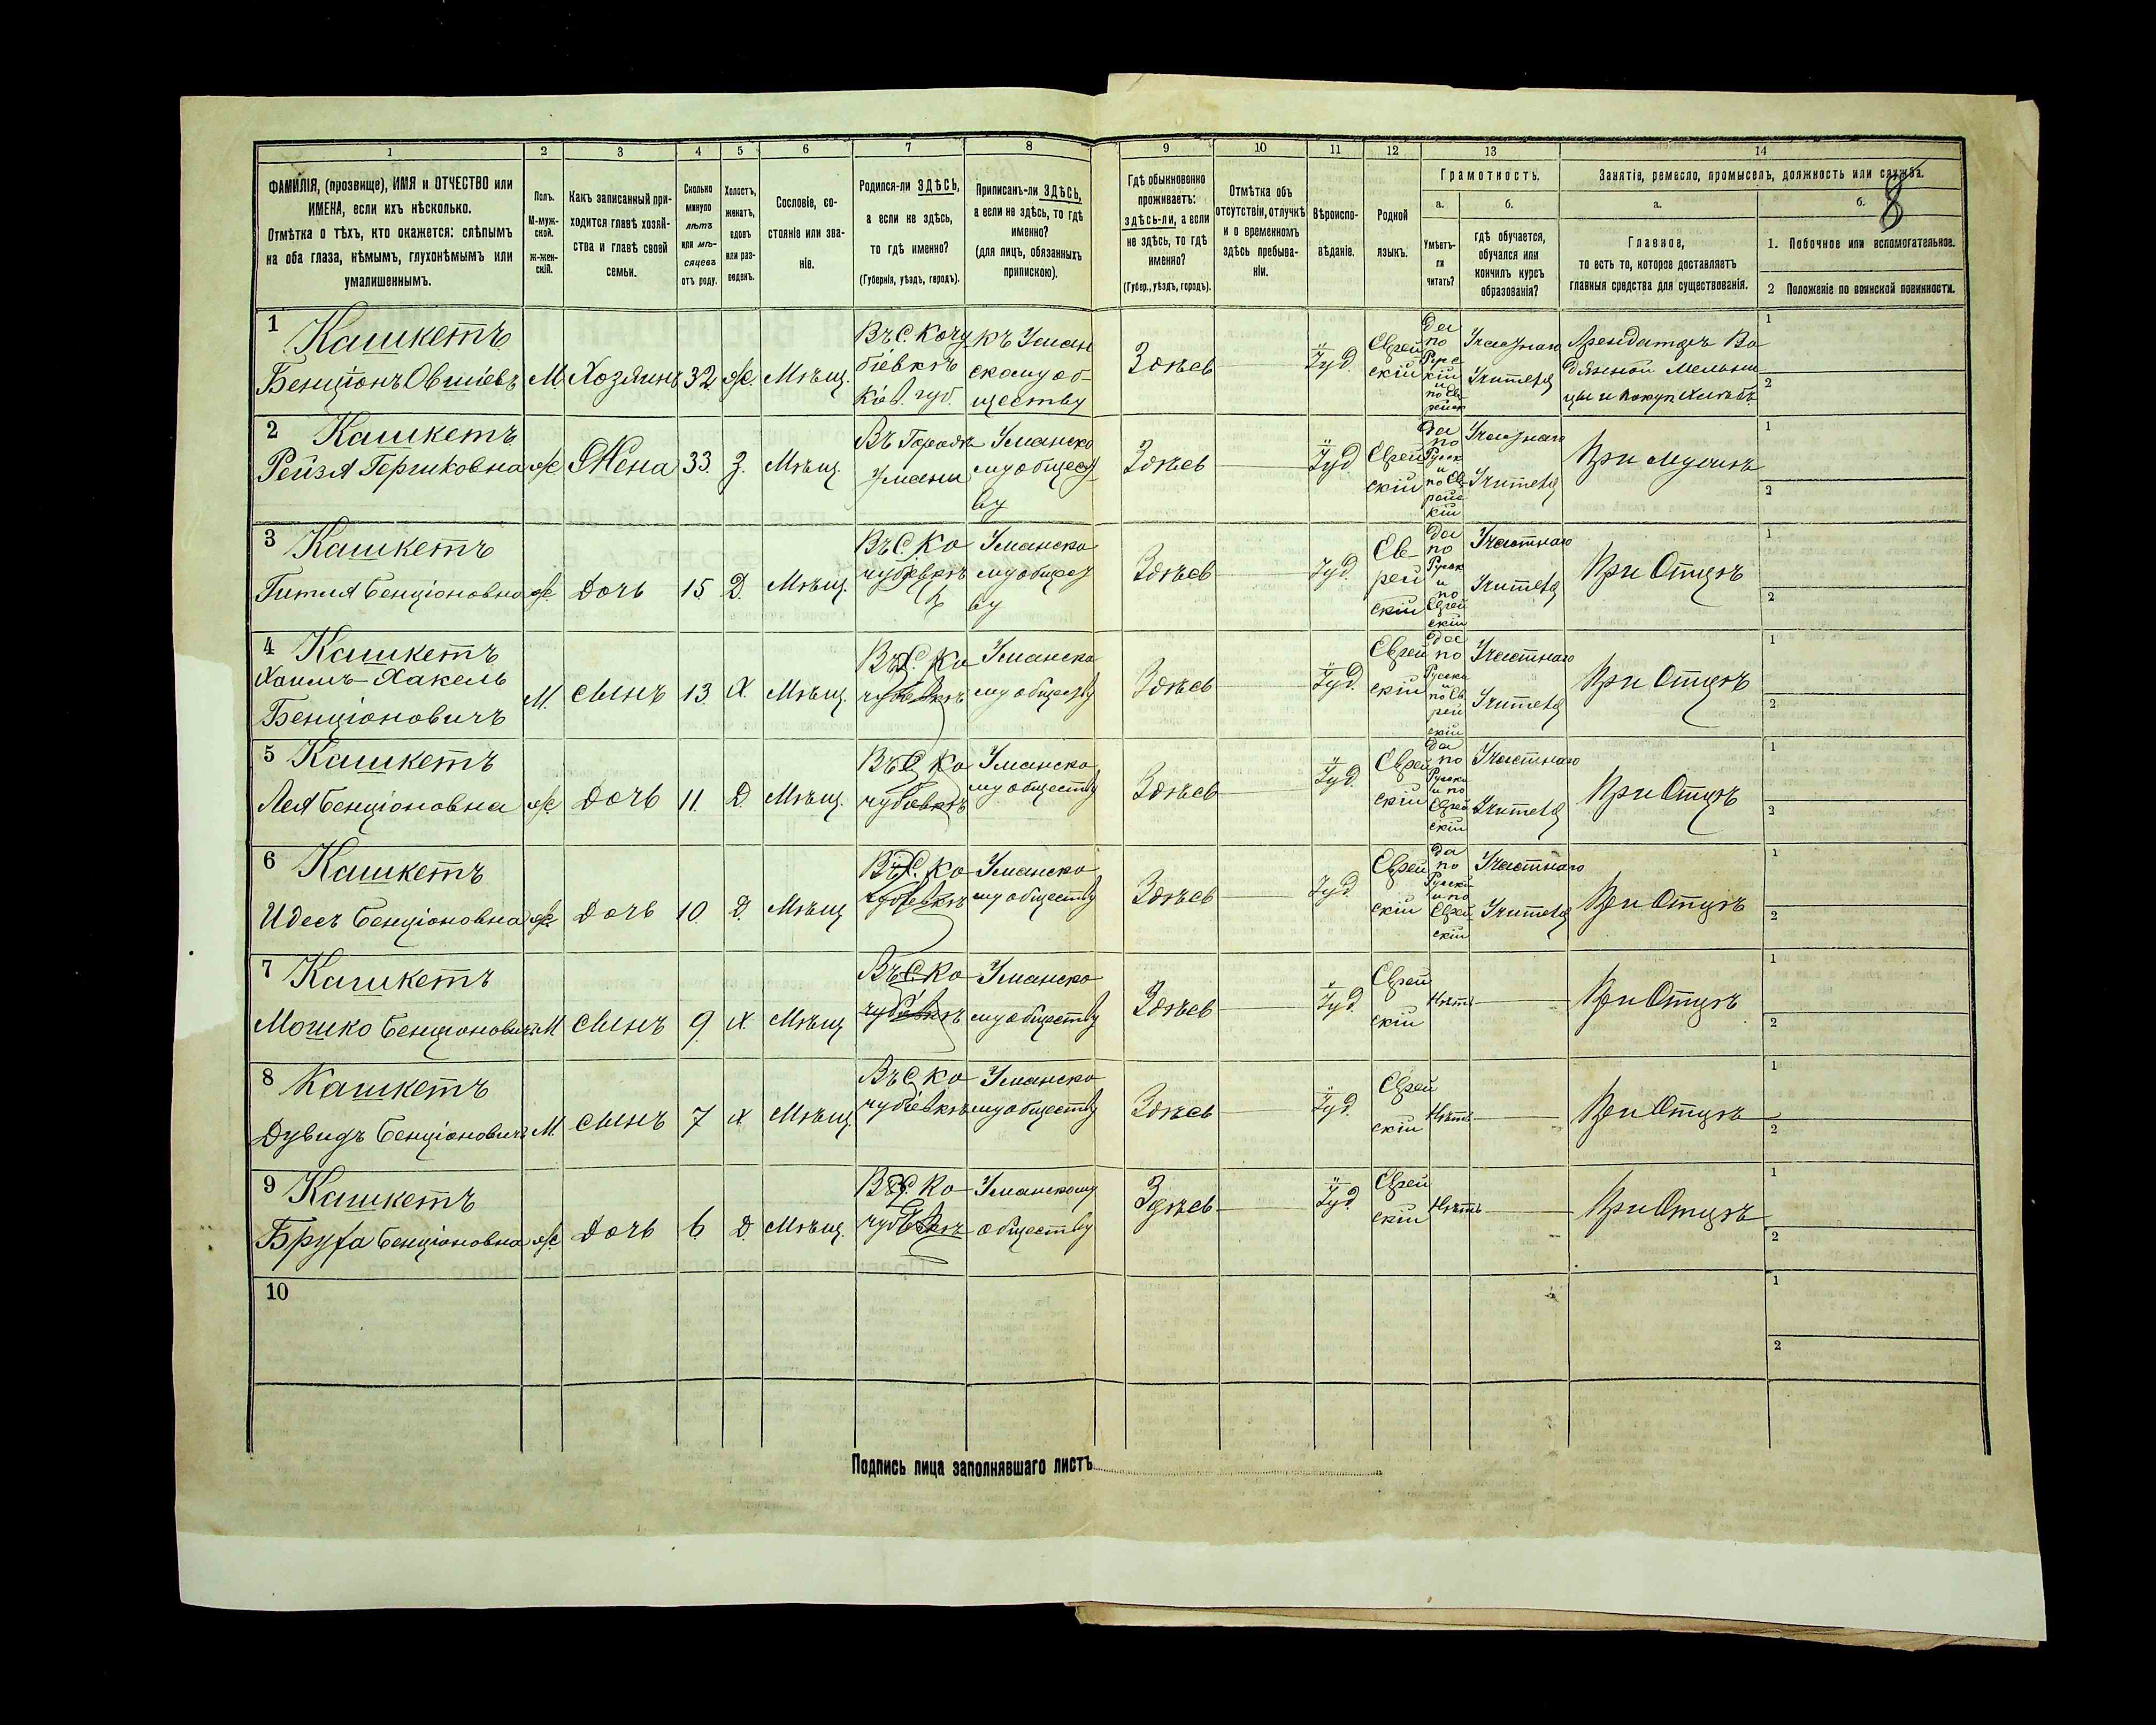 1 2 3 4 5 6 7 8 9 10 11 12 13 14
8
ФАМИЛІЯ, (прозвище), ИМЯ и ОТЧЕСТВО или
ИМЕНА, если ихъ нѣсколько.
Отмѣтка о тѣхъ, кто окажется: слѣпымъ
на оба глаза, нѣмымъ, глухонѣмымъ или
умалишеннымъ.
Полъ.
М-муж-
ской.
ж-жен-
скій.
Какъ записанный при-
ходится главѣ хозяй-
ства и главѣ своей
семьи.
Сколько
минуло
лѣтъ
или мѣ-
сяцевъ
отъ роду.
Холостъ,
женатъ,
вдовъ
или раз-
веденъ.
Сословіе, со-
стояніе или зва-
ніе.
Родился-ли ЗДѢСЬ,
а если не здѣсь,
то гдѣ именно?
(Губернія, уѣздъ, городъ).
Приписанъ-ли ЗДѢСЬ,
а если не здѣсь, то гдѣ
именно?
(для лицъ, обязанныхъ
припискою).
Гдѣ обыкновенно
проживаетъ:
здѣсь-ли, а если
не здѣсь, то гдѣ
именно?
(Губер., уѣздъ, городъ).
Отмѣтка объ
отсутствіи, отлучкѣ
и о временномъ
здѣсь пребыва-
ніи.
Вѣроиспо-
вѣданіе.
Родной
языкъ.
Грамотность.
а.
Умѣетъ-
ли
читать?
б.
гдѣ обучается,
обучался или
кончилъ курсъ
образованія?
Занятіе, ремесло, промыселъ, должность или служба.
а.
Главное,
то есть то, которое доставляетъ
главныя средства для существованія.
б.
1. Побочное или вспомогательное.
2 Положеніе по воинской повинности.
1 Кашкетъ
Бенціонъ Овшіевъ
М. Хозяинъ 32 ж. Мѣщ.
Въ С. Кочу
біевкѣ
Кіев. губ.
къ Уман
скому об-
ществу
Здѣсь
Іуд.
Еврей
скій
Да
по
Рус
кій
и
по Ев
рейск
Частнаго
Учителя
Арендаторъ Во
дяной мельни
цы и покуп хлѣбъ
1
2
2 Кашкетъ
Рейзя Гершковна
ж. Жена 33. З. Мѣщ.
Въ Городѣ
Умани
Уманско
му общест
ву
Здѣсь
Іуд
Еврей
скій
Да
по
Русск
и
по Ев
рейс
кій
Частнаго
Учителя
При мужѣ
1
2
3 Кашкетъ
Гитля Бенціоновна
ж. Дочь 15 Д. Мѣщ.
Въ С. Ко
чубіевкѣ
Уманско
му общест
ву
Здѣсь
Іуд.
Ев-
рей
скій
Да
по
Русск
и
по
Еврей
скій
Частнаго
Учителя
При Отцѣ
1
2
4 Кашкетъ
Хаимъ-Хакель
Бенціоновичъ
М. сынъ 13. Х. Мѣщ.
Въ С. Ко
чубіевкѣ
Уманско
му обществу
Здѣсь
Іуд.
Еврей
скій
Да
по
Русски
и
по Ев
рей
скій
Частнаго
Учителя
При Отцѣ
1
2
5 Кашкетъ
Лея Бенціоновна
ж. Дочь 11. Д. Мѣщ.
Въ С. Ко
чубіевкѣ
Уманско
му обществу
Здѣсь
Іуд.
Еврей
скій
Да
по
Русски
и по
Еврей
скій
Частнаго
Учителя
При Отцѣ
1
2
6 Кашкетъ
Идесъ Бенціоновна
ж. Дочь 10. Д. Мѣщ
Въ С. Ко
чубіевкѣ
Уманско
му обществу
Здѣсь
Іуд
Еврей
скій
Да
по
Русски
и по
Еврей
скій
Частнаго
Учителя
При Отцѣ
1
2
7 Кашкетъ
Мошко Бенціоновичъ
М сынъ 9. Х. Мѣщ
Въ С. Ко
чубіевкѣ
Уманско
му обществу
Здѣсь
Іуд.
Еврей
скій
Нѣтъ
При Отцѣ
1
2
8 Кашкетъ
Дувидъ Бенціоновичъ
М. сынъ 7 Х. Мѣщ.
Въ С. Ко
чубіевкѣ
Уманско
му обществу
Здѣсь
Іуд.
Еврей
скій
Нѣтъ
При Отцѣ
1
2
9 Кашкетъ
Бруха Бенціоновна
ж. Дочь 6. Д. Мѣщ.
Въ С. Ко
чубіевкѣ
Уманскому
обществу
Здѣсь
Іуд.
Еврей
скій
Нѣтъ
При Отцѣ
1
2
10
1
2
Подпись лица заполнявшаго листъ